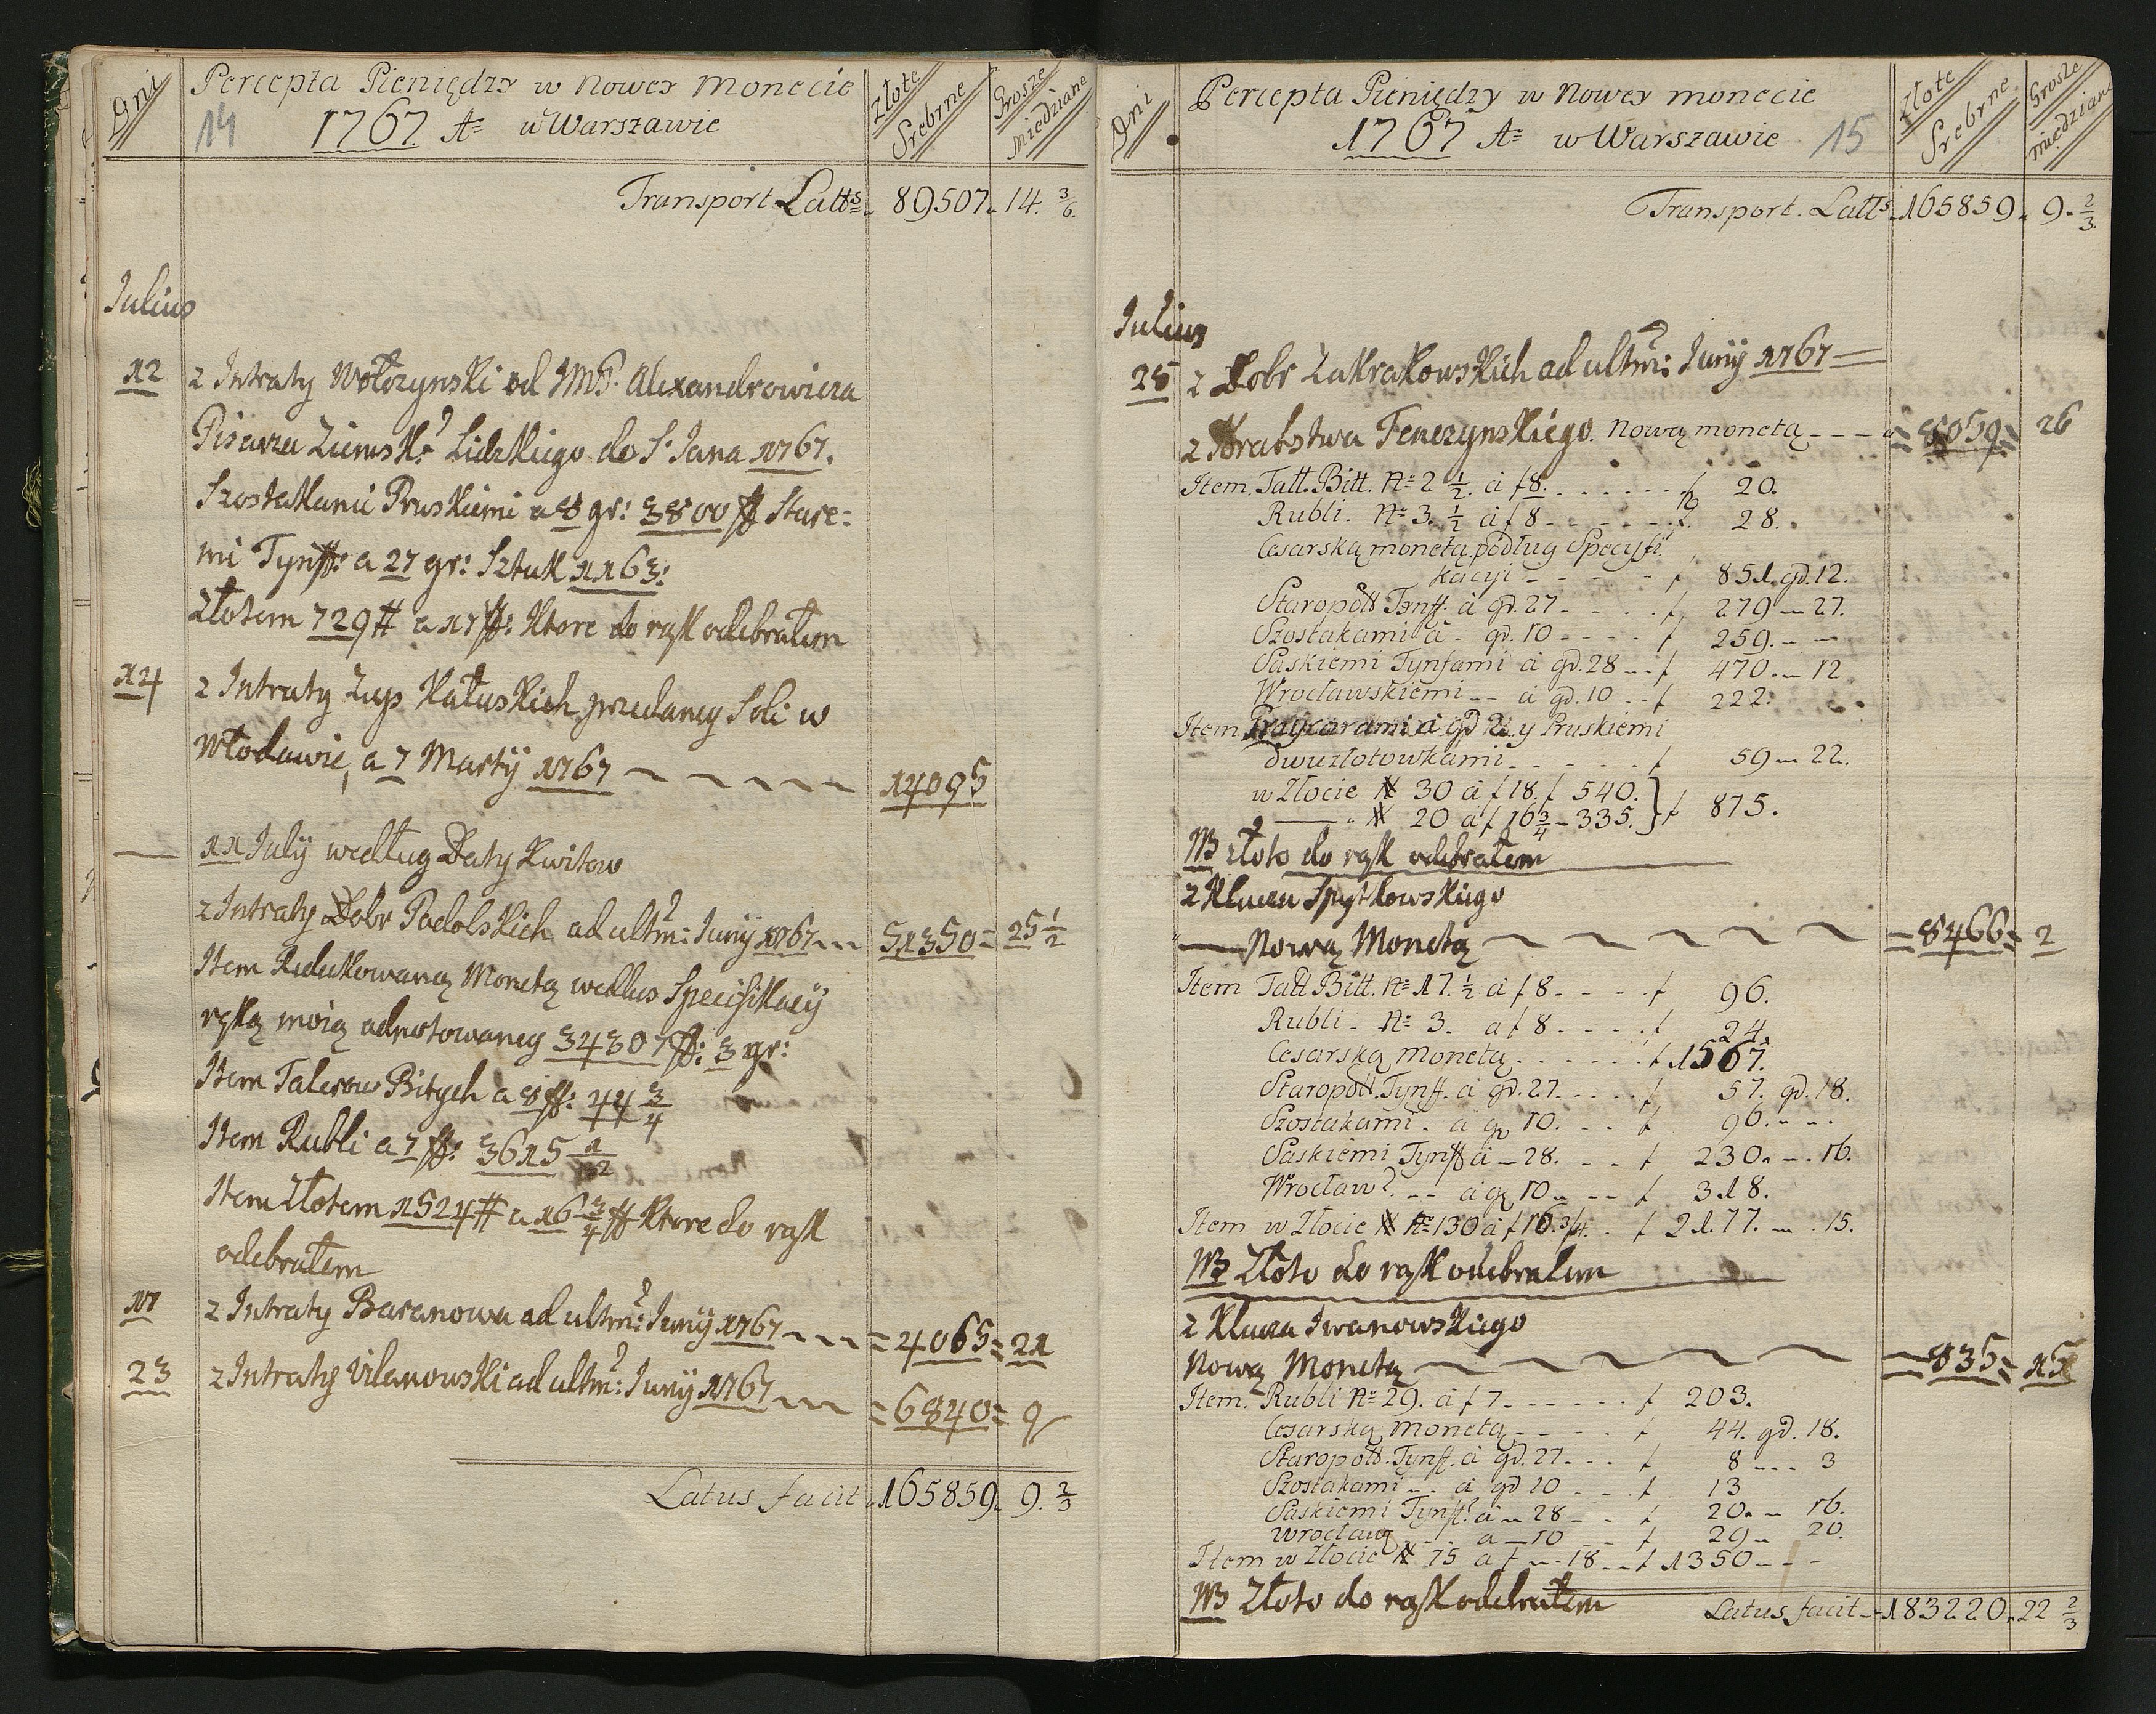 Dni
Percepta Pieniędzy w Nowey Monecie
Złote Srebrne
Grosze Miedziane
14
1767 Aº w Warszawie
Transport Latts 89507. 14. 3/6.
Julius
12 z Intraty Wołczynski od JMP. Alexandrowicza
Pisarza Ziemskº Lidzkiego do S. Jana 1767.
Szostakami Pruskiemi a 8 gr: 3800 ff Stare=
mi Tynff: a 27 gr: Sztuk 1163:
Złotem 729 # a 17 ff: Ktore do rąk odebrałem
14 z Intraty Zup Kałuskich, przedaney Soli w
Włodawie, a 7 Martÿ 1767 14095
11 Julÿ według Daty Kwitow
z Intraty Dobr Podolskich ad ultm: Junÿ 1767 51350 = 25 1/2
Item Redukowaną Monetą wedlus Specifikacÿ
ręką moią adnotowaney 34307 ff: 3 gr:
Item Talerow Bitych a 8 ff: 44 3/4
Item Rubli a 7 ff: 3615 1/2
Item Złotem 1524 # a 16 3/4 ff Ktore do rąk
odebrałem
17 z Intraty Baranowa ad ultm: Junÿ 1767 = 4065 = 21
23 z Intraty Vilanowski ad ultm: Junÿ 1767 = 6840 = 9
Latus facit 165859. 9. 2/3
Dni
Percepta Pieniędzy w Nowey monecie
Złote Srebrne
Grosze Miedziane
1767 Aº w Warszawie 15
Transport. Latts. 165859. 9. 2/3.
Julius
28 z Dobr Zakrakowskich ad ultm: Junÿ 1767
z Hrabstwa Tenczynskiego. Nową monetą = 8059 = 26
Item. Tall. Bitt. Nº 2 1/2. à f 8. f 20.
Rubli. Nº 3. 1/2 à f 8 f. 28.
Cesarską monetą podług Specyfi
kacyi f 851. gd. 12.
Staropoll Tynff. à gd. 27 f 279 27.
Szostakami à gd. 10 f 259.
Saskiemi Tynfami à gd. 28 f 470. 12
Wrocławskiemi à gd. 10 f 222.
Item Praycarami à gd 2 y Pruskiemi
dwuzłotowkami f 59 22.
w Złocie # 30 à f 18. f 540.
# 20 à f 16 3/4 335. } f 875.
NB złoto do rąk odebrałem
z Klucza Spytkowskiego
Nową Monetą = 8466 = 2
Item Tall Bitt. Nº 17. 1/2 à f 8 f 96.
Rubli Nº 3. a f 8 f 24.
Cesarską Monetą f 1567.
Staropoll. Tynff. à gd. 27. f 57. gd. 18.
Szostakami. a gd 10. f 96.
Saskiemi Tynff à 28. f 230. 16.
Wrocław. à gd 10 f 318.
Item w Złocie # Nº 130 à f 16. 3/4. f 2177. 15.
NB Złoto do rąk odebralem
z Klucza Iwanowskiego
Nową Monetą = 835 = 15
Item. Rubli Nº 29. à f 7 f 203.
Cesarską Monetą f 44. gd. 18.
Staropoll. Tynff. à gd. 27. f 8 3
Szostakami à gd 10 f 13
Saskiemi Tynff. à 28 f 20. 16.
Wrocław a 10 f 29 20.
Item w Złocie # 75 a f 18 f 1350
NB Złoto do rąk odebrałem
Latus facit 183220. 22 2/3